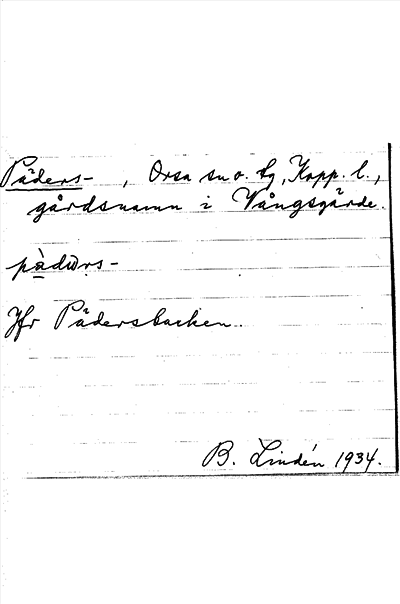 Päders- , Orsa sn o. tg, Kopp. l.,
gårdsnamn i Vångsgärde.
pàdẉṛs-
Jfr Pädersbacken.
B. Lindén 1934.